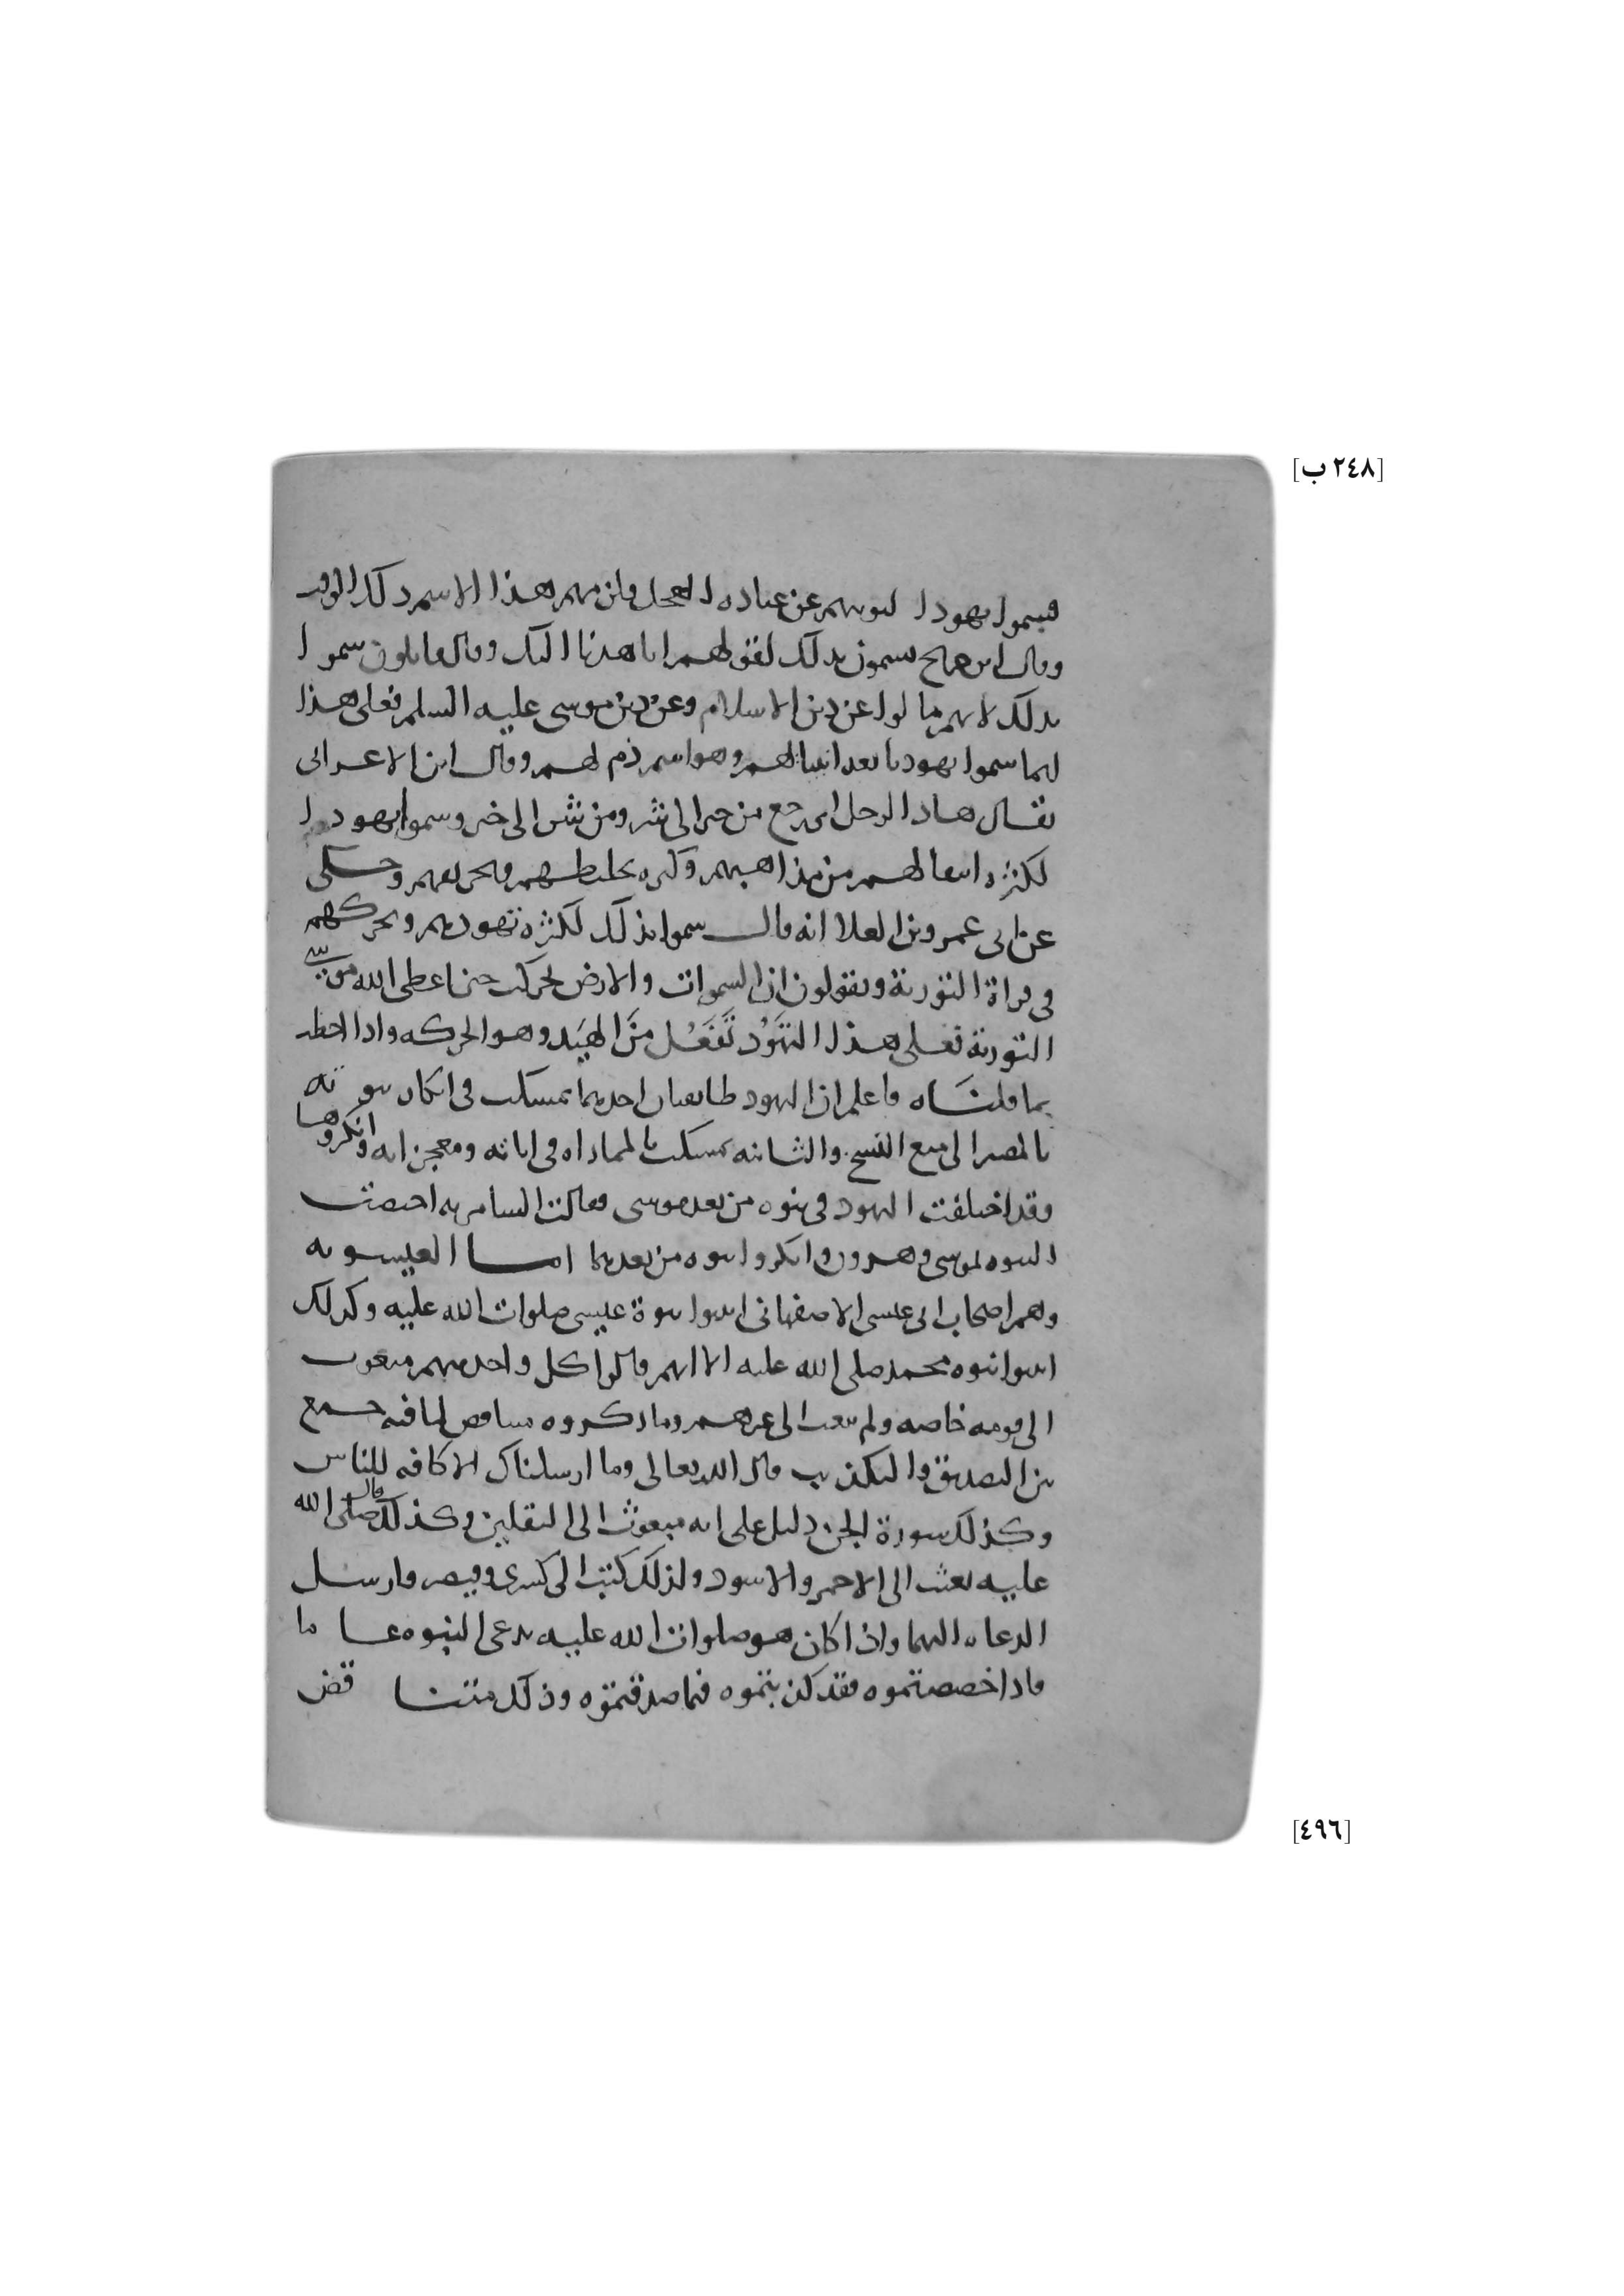 [٢٤٨ ب]
فسموا يهودا لتوبتهم عن عبادة العجل ولزمهم هذا الاسم ذلك الوقت
وقال ابن جريج يسمون بذلك لقولهم انا هدنا اليك وقال قايلون سموا
بذلك لانهم مالوا عن دين الاسلام وعن دين موسى عليه السلم فعلى هذا
انما سموا يهودا بعد انبيائهم وهو اسم ذم لهم وقال ابن الاعرابى
يقال هاد الرجل اى رجع من خير الى شر ومن شر الى خير وسموا يهودا
لكثرة انتقالهم من مذاهبهم وكثرة تخليطهم وتحريفهم وحكى
عن ابى عمرو بن العلا انه قال سموا بذلك لكثرة تهودهم وتحركهم
فى قراة التورية ويقولون ان السموات والارض تحركت حين اعطى الله موسى
التورية فعلى هذا التهَوُّد تَفَعُّل مِنَ الهَيْد وهو الحركه واذا احطت
بما قلناه فاعلم ان اليهود طايفتان احديهما تمسكت فى انكار نبوته
بالمصير الى منع النسخ والثانيه تمسكت بالمماراه فى اياته ومعجزاته وانكروها
وقد اختلفت اليهود فى نبوه من بعد موسى فقالت السامريه اختصت
النبوه بموسى وهرون وانكروا نبوه من بعدهما اما العيسويه
وهم اصحاب ابى عيسى الاصفهانى اثبتوا نبوة عيسى صلوات الله عليه وكذلك
اثبتوا نبوه محمد صلى الله عليه الا انهم قالوا كل واحد منهم مبعوث
الى قومه خاصه ولم يبعث الى غيرهم وما ذكروه تناقض لما فيه جمع
بين التصديق والتكذيب قال الله تعالى وما ارسلناك الا كافه للناس
وكذلك سورة الجن دليل على انه مبعوث الى الثقلين وكذلك قال صلى الله
عليه بعثت الى الاحمر والاسود ولذلك كتب الى كسرى وقيصر وارسل
الدعاه اليهما واذا كان هو صلوات الله عليه يدعى النبوه عاما
فاذا خصصتموه فقد كذبتموه فما صدقتموه وذلك متناقض
[٤٩٦]